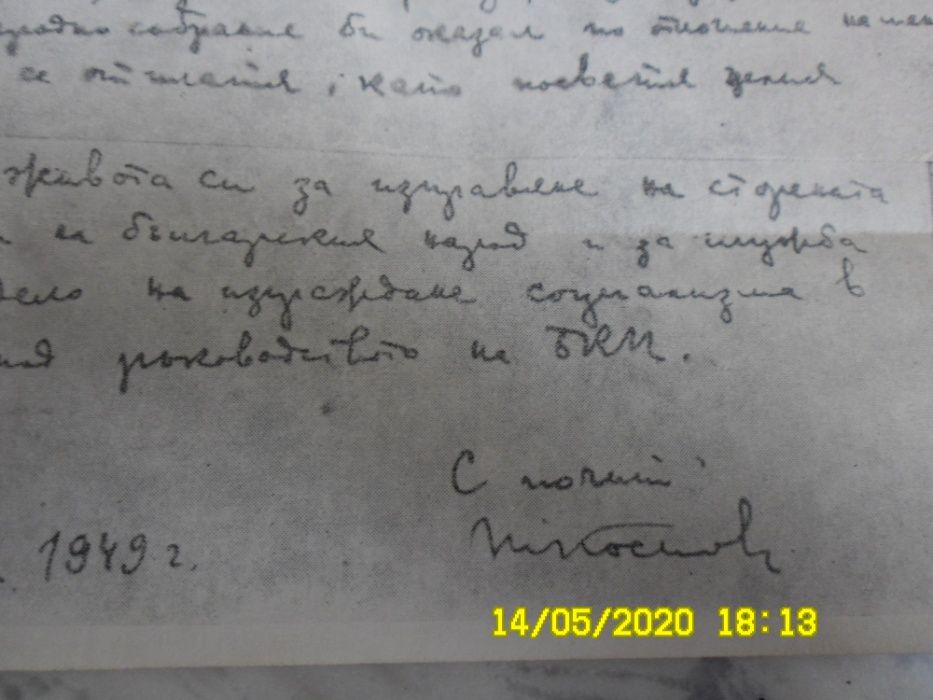 народно събрание би оказал по отношение на мен
се отплатя, като посветя целия
живота си за изправяне на сторената
на българския народ и за служба
дело на изграждане социализма в
под ръководството на БКП.
С почит
1949 г.
ТрКостов
14/05/2020 18:13